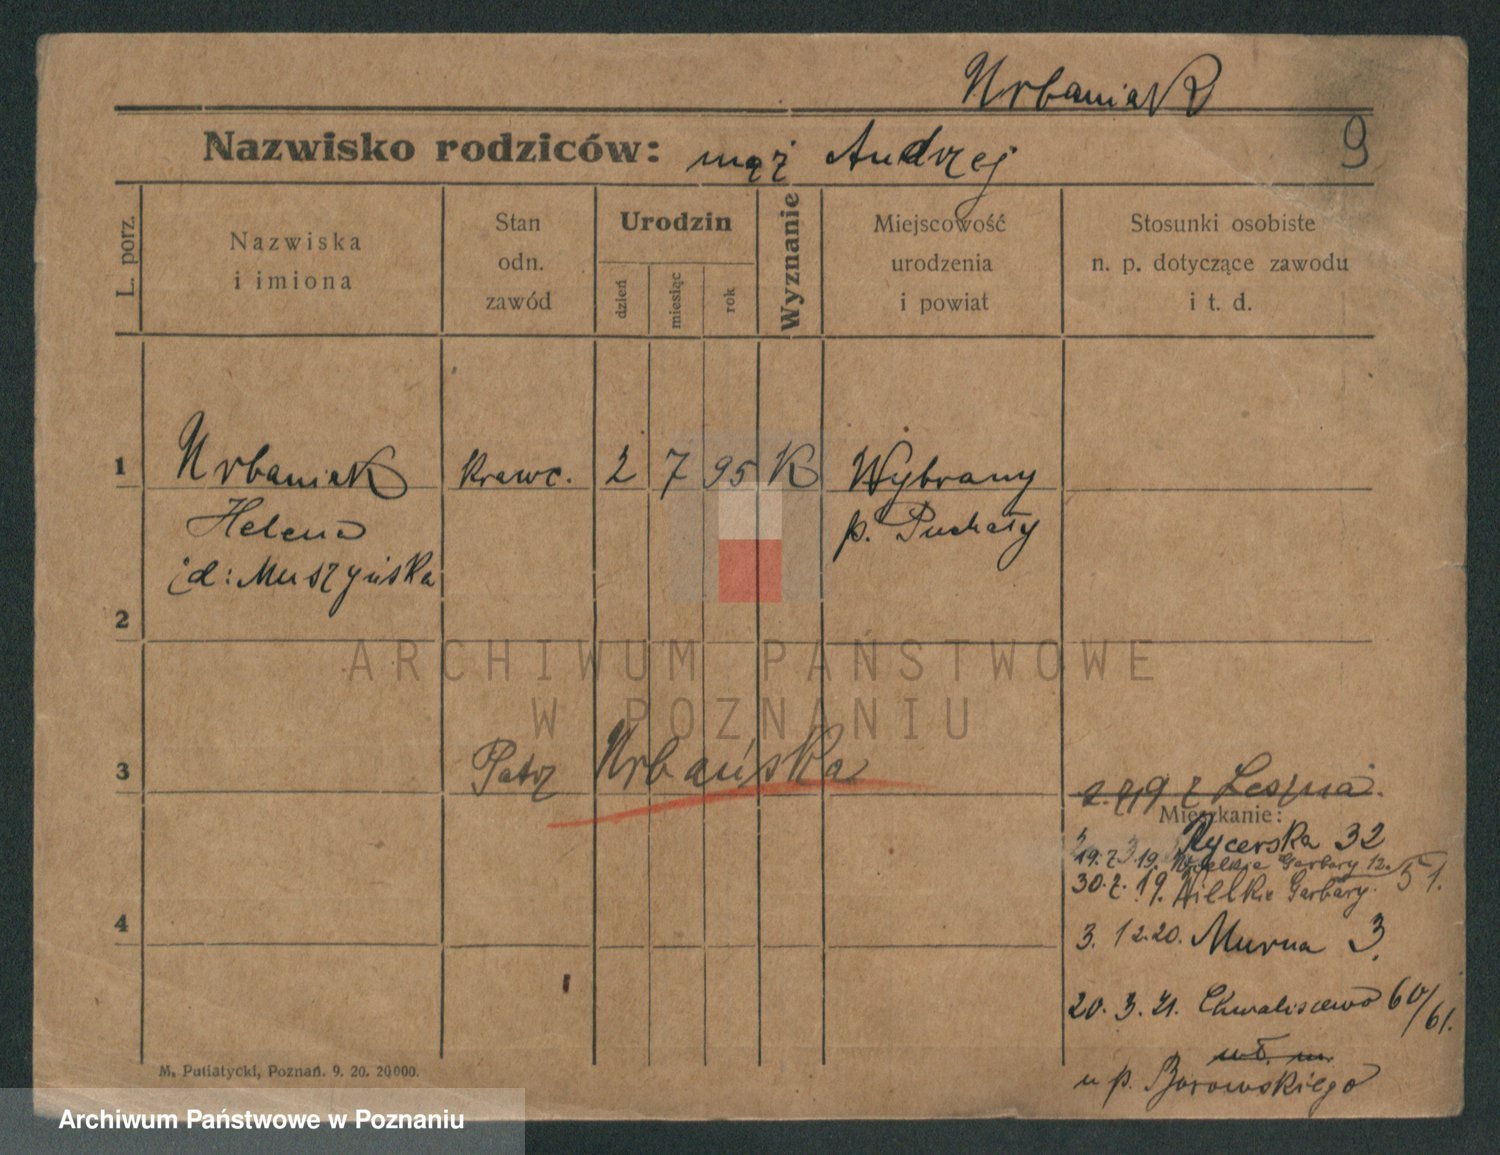 Urbaniak
Nazwisko rodziców: mąż Andrzej
9
L. porz.
Nazwiska
i imiona
Stan
odn.
zawód
Urodzin
dzień
miesiąc
rok
Wyznanie
Miejscowość
urodzenia
i powiat
Stosunki osobiste
n. p. dotyczące zawodu
i t. d.
1 Urbaniak krawc. 2 7 95 K Wybrany
Helena p. Puchały
d: Muszyńska
2
ARCHIWUM PAŃSTWOWE
W POZNANIU
3 Patrz Urbańska
z Leszna.
Mieszkanie:
Rycerska 32
19. 7. 19. Wielkie Garbary 12.
30. 7. 19. Wielkie Garbary. 51.
3. 12.20. Murna 3.
4
20. 3. 21. Chwaliszewo 60/61.
u p. Borowskiego
M. Putiatycki, Poznań. 9. 20. 20000.
Archiwum Państwowe w Poznaniu